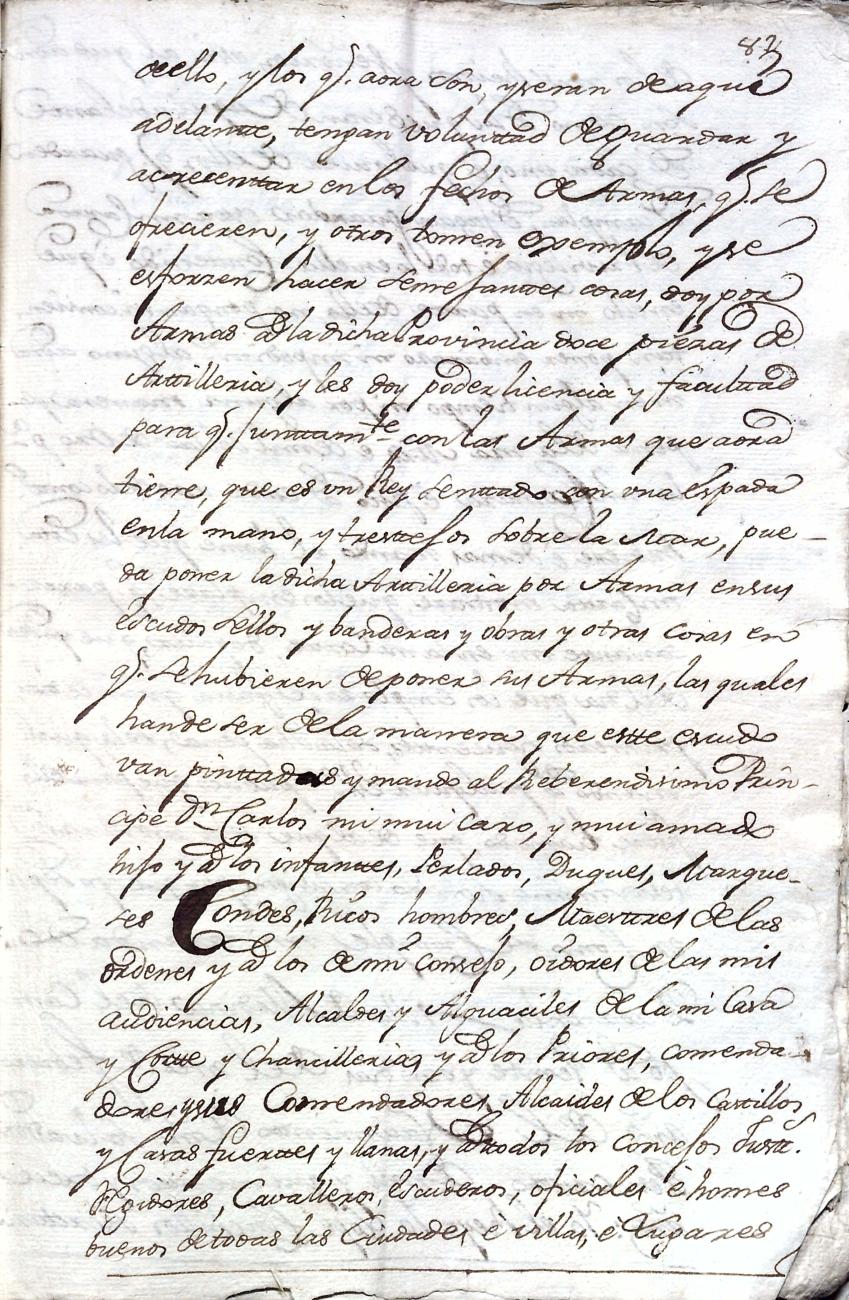 82
deello, y los q.e aora son, y seran de aqui
adelantte, tengan voluntad de guardar y
acrecenttar en los fechos de Armas, q.e se
ofrecieren, y otros tomen exemplo, y se
esforzen hacer semejanttes cosas, doy por
Armas a la dicha Provincia doce piezas de
Arttilleria, y les doy poder licencia y facultad
para q.e Junttam.te con las Armas que aora
tiene, que es un Rey senttado con una espada
en la mano, y tres ttejos sobre la Mar, pue-
da poner la dicha Arttilleria por Armas en sus
escudos sellos y banderas y obras y otras cosas en
q.e se hubieren de poner sus Armas, las quales
han de ser de la manera que estte escudo
van pinttadas y mando al Reberendisimo Prin-
cipe Dn Carlos mi mui caro, y mui amado
hijo y a los infanttes, Perlados, Duques, Marque-
ses Condes, Ricos hombres, Maesttres de las
ordenes y a los de mi consejo, oidores de las mis
audiencias, Alcaldes y Alguaciles de la mi Casa
y Cortte y Chancillerias y a los Priores, comenda-
dores y sus Comendadores, Alcaides de los Casttillos
y Casas fuerttes y llanas, y a todos los Concejos Justt.s
Regidores, Cavalleros, escuderos, oficiales é homes
buenos de todas las Ciudades é villas, é Lugares